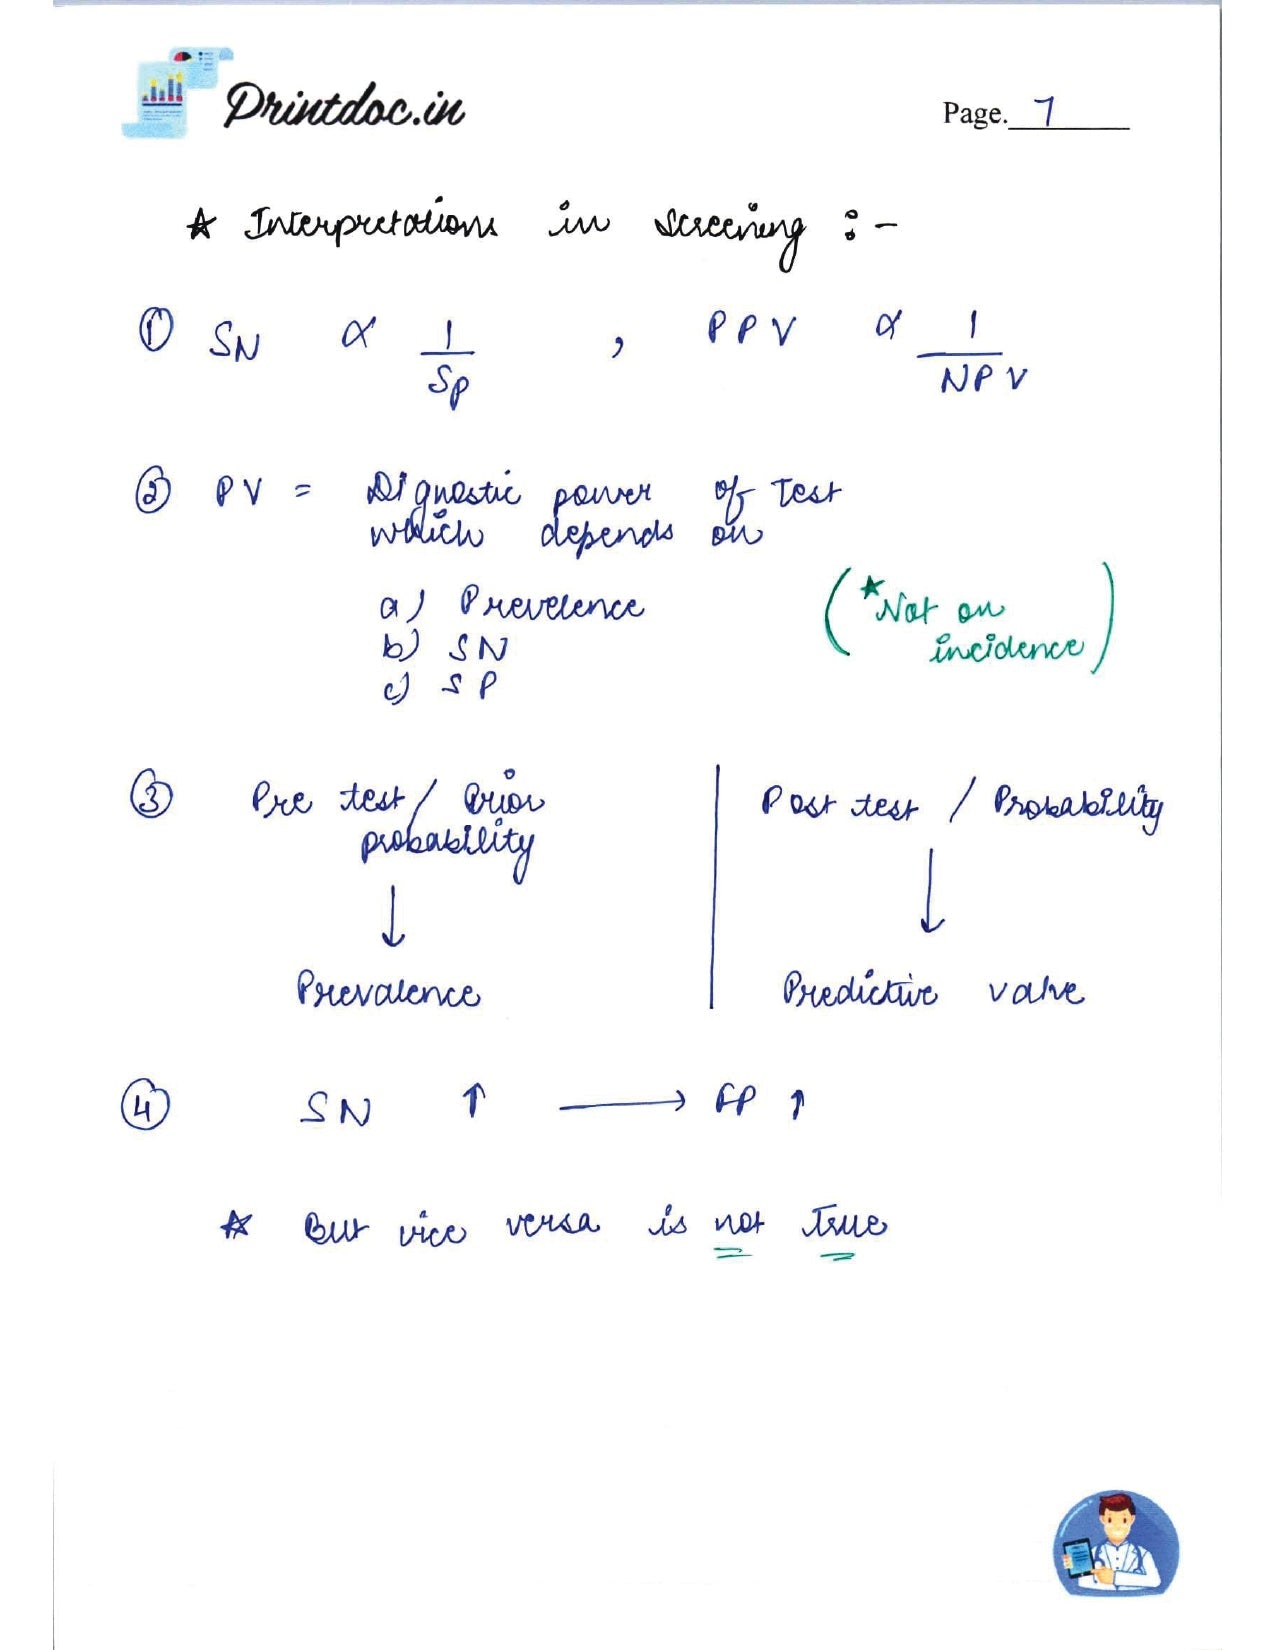 Printdoc.in
Page. 7
★ Interpretations in screening :-
① SN ∝ 1/Sp , PPV ∝ 1/NPV
② PV = Dignostic power of Test
which depends on
a) Prevelence
b) SN
c) SP
(★ Not on
incidence)
③ Pre test / Prior
probability
↓
Prevalence
Post test / Probability
↓
Predictive value
④ SN ↑ → FP ↑
★ But vice versa is not true